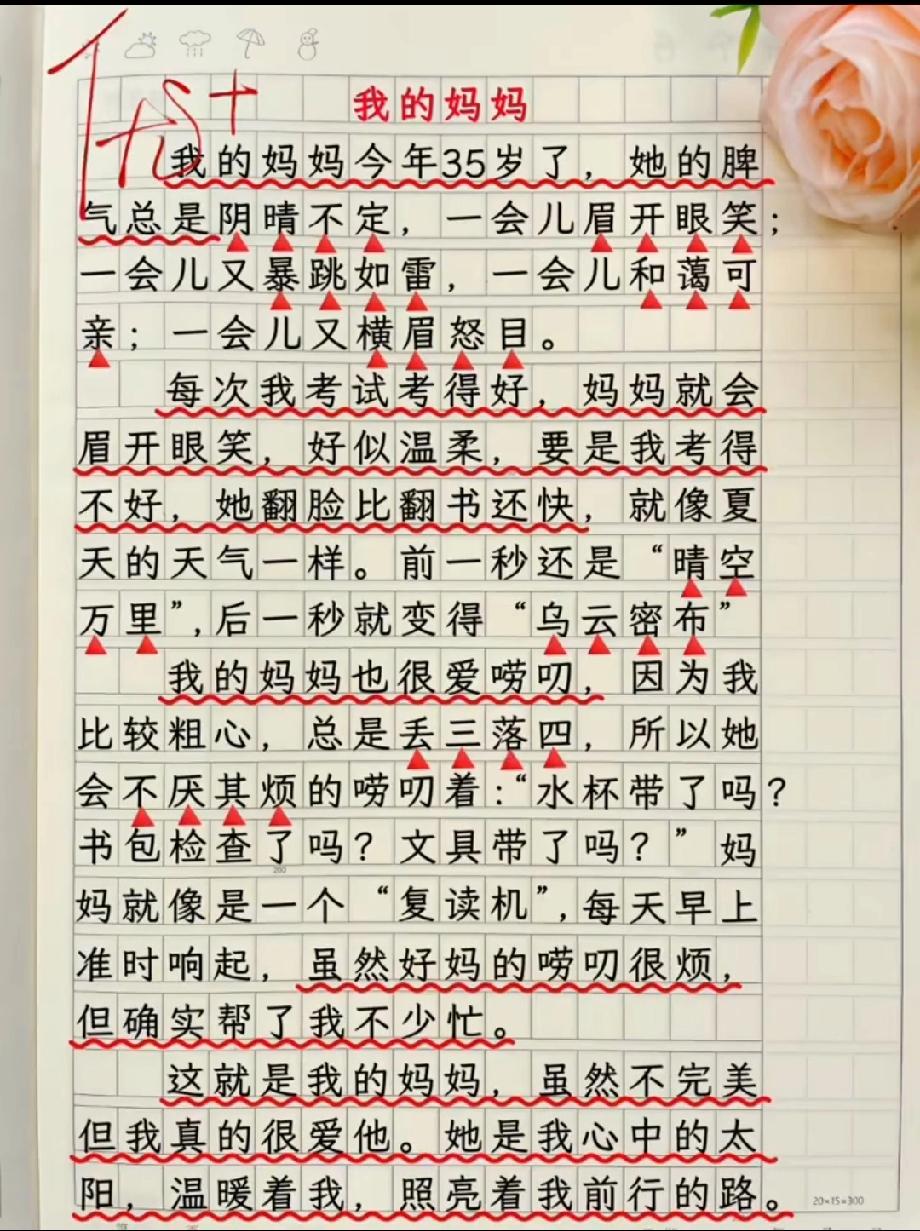 优+
我的妈妈
我的妈妈今年35岁了，她的脾
气总是阴晴不定，一会儿眉开眼笑；
一会儿又暴跳如雷，一会儿和蔼可
亲；一会儿又横眉怒目。
每次我考试考得好，妈妈就会
眉开眼笑，好似温柔，要是我考得
不好，她翻脸比翻书还快，就像夏
天的天气一样。前一秒还是“晴空
万里”，后一秒就变得“乌云密布”
我的妈妈也很爱唠叨，因为我
比较粗心，总是丢三落四，所以她
会不厌其烦的唠叨着：“水杯带了吗？
书包检查了吗？文具带了吗？”妈
260
妈就像是一个“复读机”，每天早上
准时响起，虽然好妈的唠叨很烦，
但确实帮了我不少忙。
这就是我的妈妈，虽然不完美
但我真的很爱他。她是我心中的太
阳，温暖着我，照亮着我前行的路。
20×15=300